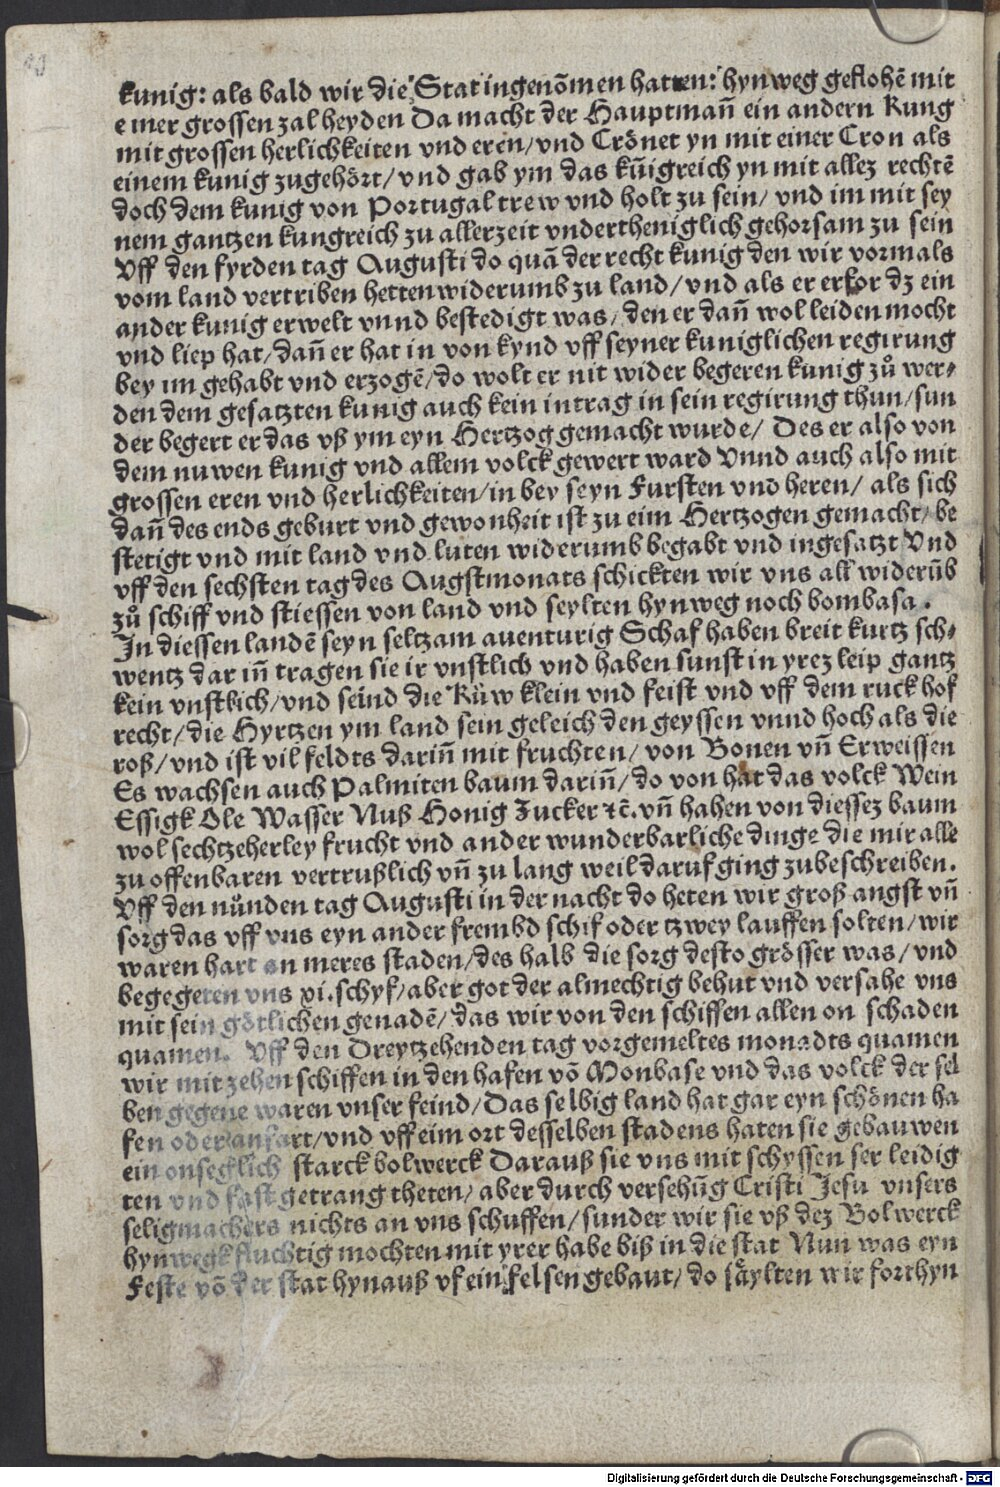 kunig: als bald wir die Stat ingenõmen hatten: hynweg geflohẽ mit
einer grossen zal heyden Da macht der Hauptmañ ein andern Kung
mit grossen herlichkeiten vnd eren/vnd Crönet yn mit einer Cron als
einem kunig zugehört/vnd gab ym das kũigreich yn mit allez rechtẽ
doch dem kunig von Portugal trew vnd holt zu sein/vnd im mit sey
nem gantzen kungreich zu allerzeit vndertheniglich gehorsam zu sein
Vff den fyrden tag Augusti do quã der recht kunig den wir vormals
vom land vertriben hetten widerumb zu land/vnd als er erfor dz ein
ander kunig erwelt vnnd bestedigt was/den er dañ wol leiden mocht
vnd liep hat/dañ er hat in von kynd vff seyner kuniglichen regirung
bey im gehabt vnd erzogẽ/do wolt er nit wider begeren kunig zů wer⸗
den dem gesatzten kunig auch kein intrag in sein regirung thun/sun
der begert er das vß ym eyn Hertzog gemacht wurde/ Des er also von
dem nuwen kunig vnd allem volck gewert ward Vnnd auch also mit
grossen eren vnd herlichkeiten/in bey seyn Fursten vnd heren/ als sich
dañ des ends geburt vnd gewonheit ist zu eim Hertzogen gemacht/be
stetigt vnd mit land vnd luten widerumb begabt vnd ingesatzt Vnd
vff den sechsten tag des Augstmonats schickten wir vns all widerũb
zů schiff vnd stiessen von land vnd seylten hynweg noch bombasa.
In diessen landẽ seyn seltzam auenturig Schaf haben breit kurtz sch⸗
wentz dar iñ tragen sie ir vnstlich vnd haben sunst in yrez leip gantz
kein vnstlich/vnd seind die Küw klein vnd feist vnd vff dem ruck hof
recht/die Hyrtzen ym land sein geleich den geyssen vnnd hoch als die
roß/vnd ist vil feldts dariñ mit fruchten/von Bonen vñ Erweissen
Es wachsen auch Palmiten baum dariñ/do von hat das volck Wein
Essigk Ole Wasser Nuß Honig Zucker ⁊c̃. vñ haben von diessez baum
wol sechtzeherley frucht vnd ander wunderbarliche dinge die mir alle
zu offenbaren vertrußlich vñ zu lang weil daruf ging zubeschreiben.
Vff den nůnden tag Augusti in der nacht do heten wir groß angst vñ
sorg das vff vns eyn ander frembd schif oder tzwey lauffen solten/wir
waren hart an meres staden/des halb die sorg desto grösser was/vnd
begegeten vns xi.schyf/aber got der almechtig behut vnd versahe vns
mit sein götlichen genadẽ/das wir von den schiffen allen on schaden
quamen. Vff den Dreytzehenden tag vorgemeltes monadts quamen
wir mit zehen schiffen in den hafen võ Monbase vnd das volck der sel
ben gegene waren vnser feind/Das selbig land hat gar eyn schönen ha
fen oder anfart/vnd vff eim ort desselben stadens haten sie gebauwen
ein onseglich starck bolwerck Darauß sie vns mit schyssen ser leidig
ten vnd fast getrang theten/aber durch versehũg Cristi Jesu vnsers
seligmachers nichts an vns schuffen/sunder wir sie vß dez Bolwerck
hynwegk fluchtig mochten mit yrer habe biß in die stat Nun was eyn
Feste võ der stat hynauß vf ein felsen gebaut/do saylten wir forthyn
Digitalisierung gefördert durch die Deutsche Forschungsgemeinschaft - DFG